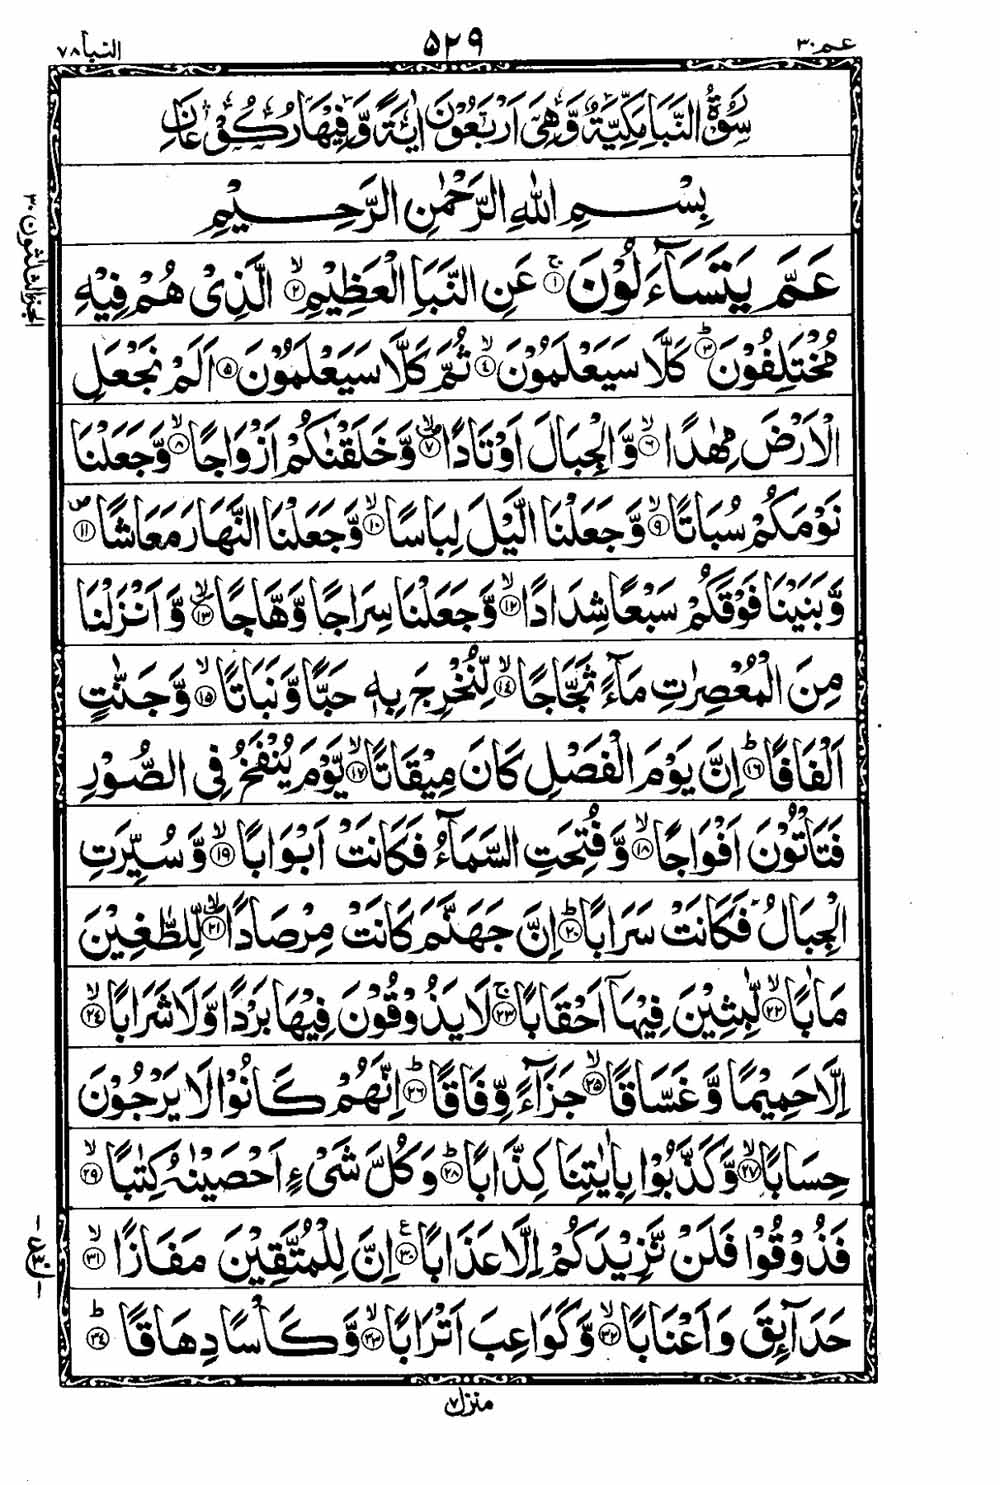 عم ٣٠
٥٢٩
النبا ٧٨
سُوْرَةُ النَّبَاِ مَكِّيَّةٌ وَّهِىَ اَرْبَعُوْنَ اٰيَةً وَّفِيْهَا رُكُوْعَانِ
بِسْمِ اللهِ الرَّحْمٰنِ الرَّحِيْمِ
عَمَّ يَتَسَآءَلُوْنَ ۚ ﴿١﴾ عَنِ النَّبَاِ الْعَظِيْمِ ۙ ﴿٢﴾ الَّذِىْ هُمْ فِيْهِ
مُخْتَلِفُوْنَ ؕ ﴿٣﴾ كَلَّا سَيَعْلَمُوْنَ ۙ ﴿٤﴾ ثُمَّ كَلَّا سَيَعْلَمُوْنَ ﴿٥﴾ اَلَمْ نَجْعَلِ
الْاَرْضَ مِهٰدًا ۙ ﴿٦﴾ وَّالْجِبَالَ اَوْتَادًا ﴿٧﴾ وَّخَلَقْنٰكُمْ اَزْوَاجًا ۙ ﴿٨﴾ وَّجَعَلْنَا
نَوْمَكُمْ سُبَاتًا ۙ ﴿٩﴾ وَّجَعَلْنَا الَّيْلَ لِبَاسًا ۙ ﴿١٠﴾ وَّجَعَلْنَا النَّهَارَ مَعَاشًا ۪ ﴿١١﴾
وَّبَنَيْنَا فَوْقَكُمْ سَبْعًا شِدَادًا ۙ ﴿١٢﴾ وَّجَعَلْنَا سِرَاجًا وَّهَّاجًا ۙ ﴿١٣﴾ وَّاَنْزَلْنَا
مِنَ الْمُعْصِرٰتِ مَآءً ثَجَّاجًا ۙ ﴿١٤﴾ لِّنُخْرِجَ بِهٖ حَبًّا وَّنَبَاتًا ۙ ﴿١٥﴾ وَّجَنّٰتٍ
اَلْفَافًا ؕ ﴿١٦﴾ اِنَّ يَوْمَ الْفَصْلِ كَانَ مِيْقَاتًا ۙ ﴿١٧﴾ يَّوْمَ يُنْفَخُ فِى الصُّوْرِ
فَتَاْتُوْنَ اَفْوَاجًا ۙ ﴿١٨﴾ وَّفُتِحَتِ السَّمَآءُ فَكَانَتْ اَبْوَابًا ۙ ﴿١٩﴾ وَّسُيِّرَتِ
الْجِبَالُ فَكَانَتْ سَرَابًا ؕ ﴿٢٠﴾ اِنَّ جَهَنَّمَ كَانَتْ مِرْصَادًا ۙ ﴿٢١﴾ لِّلطَّغِيْنَ
مَاٰبًا ۙ ﴿٢٢﴾ لّٰبِثِيْنَ فِيْهَآ اَحْقَابًا ۚ ﴿٢٣﴾ لَا يَذُوْقُوْنَ فِيْهَا بَرْدًا وَّلَا شَرَابًا ۙ ﴿٢٤﴾
اِلَّا حَمِيْمًا وَّغَسَّاقًا ۙ ﴿٢٥﴾ جَزَآءً وِّفَاقًا ؕ ﴿٢٦﴾ اِنَّهُمْ كَانُوْا لَا يَرْجُوْنَ
حِسَابًا ۙ ﴿٢٧﴾ وَّكَذَّبُوْا بِاٰيٰتِنَا كِذَّابًا ؕ ﴿٢٨﴾ وَكُلَّ شَىْءٍ اَحْصَيْنٰهُ كِتٰبًا ۙ ﴿٢٩﴾
فَذُوْقُوْا فَلَنْ نَّزِيْدَكُمْ اِلَّا عَذَابًا ﴿٣٠﴾ اِنَّ لِلْمُتَّقِيْنَ مَفَازًا ۙ ﴿٣١﴾
حَدَآئِقَ وَاَعْنَابًا ۙ ﴿٣٢﴾ وَّكَوَاعِبَ اَتْرَابًا ۙ ﴿٣٣﴾ وَّكَاْسًا دِهَاقًا ؕ ﴿٣٤﴾
منزل ٧
الجزء الثلثون ٣٠